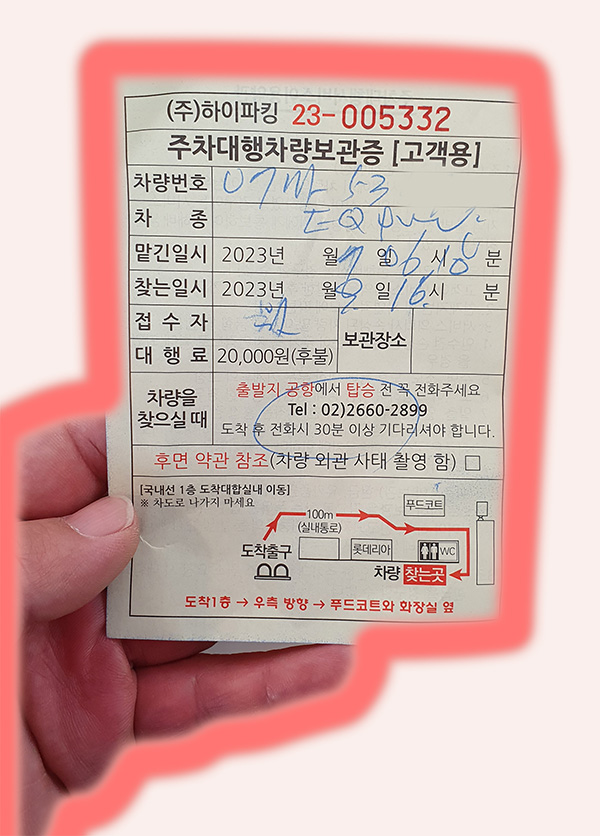 (주)하이파킹 23-005332
주차대행차량보관증 [고객용]
차량번호 53
차 종 EQ
맡긴일시 2023년 월 일 06시 분
찾는일시 2023년 월 일 16시 분
접 수 자
보관장소
대 행 료 20,000원(후불)
차량을 찾으실 때
출발지 공항에서 탑승 전 꼭 전화주세요
Tel : 02)2660-2899
도착 후 전화시 30분 이상 기다리셔야 합니다.
후면 약관 참조(차량 외관 사태 촬영 함) □
[국내선 1층 도착대합실내 이동]
※ 차도로 나가지 마세요
푸드코트
100m
(실내통로)
도착출구
롯데리아
WC
차량 찾는곳
도착1층 → 우측 방향 → 푸드코트와 화장실 옆